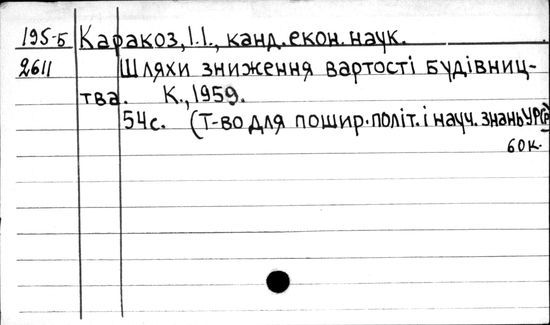 195-Б Каракоз, І.І., канд. екон. наук.
2611 Шляхи зниження вартості будівниц-
тва. К., 1959.
54с. (Т-во для пошир. політ. і науч. знань УРСР)
60к.